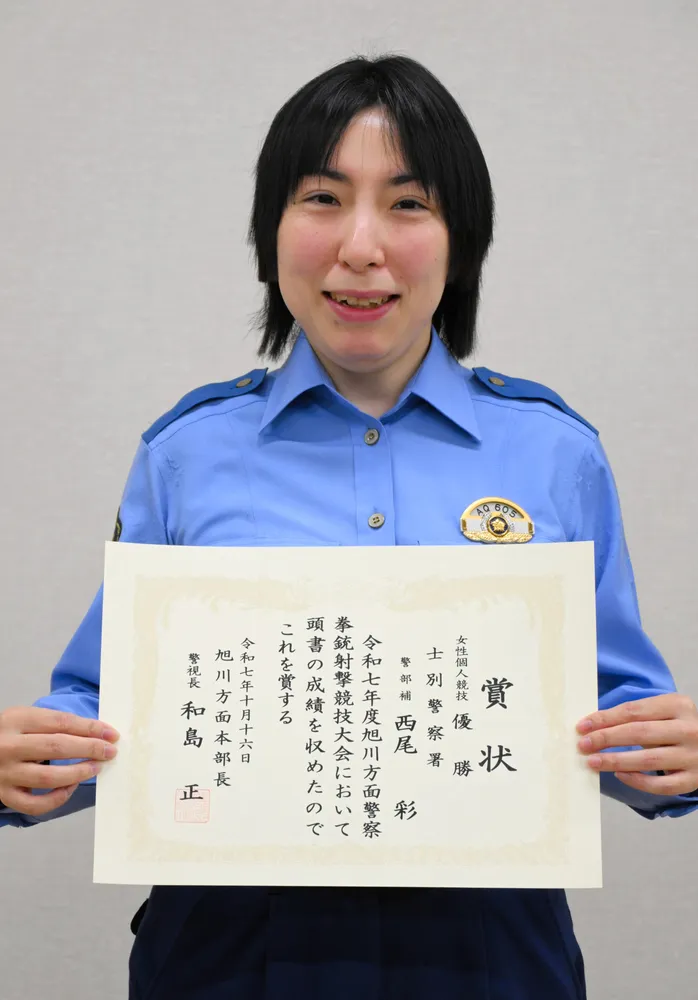 AQ 605
賞状
女性個人競技 優勝
士別警察署
警部補 西尾 彩
令和七年度旭川方面警察
拳銃射撃競技大会において
頭書の成績を収めたので
これを賞する
令和七年十月十六日
旭川方面本部長
警視長 和島 正